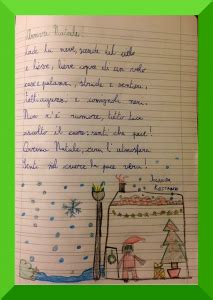 Arriva Natale
Cade la neve, scende dal cielo
e lieve, lieve copre di un velo
case, palazzi, strade e sentieri,
e comignoli neri.
Non c'è rumore, tutto tace
ascolta il cuore: senti che pace!
Natale, con l'atmosfera
Senti nel cuore la pace vera!